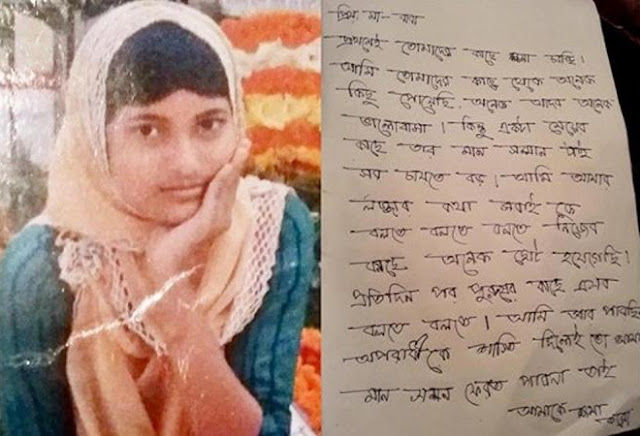 প্রিয় মা-বাবা
প্রথমেই তোমাদের কাছে ক্ষমা চাচ্ছি।
আমি তোমাদের কাছ থেকে অনেক
কিছু পেয়েছি. অনেক আদর অনেক
ভালোবাসা। কিন্তু একটা মেয়ের
কাছে তার মান সম্মান
সব চাইতে বড়। আমি আমার
লজ্জার কথা সবাই কে
বলতে বলতে বলতে নিজের
কাছে অনেক ছোট হয়েগেছি।
প্রতিদিন পর পুরুষের কাছে এসব
বলতে বলতে। আমি আর
অপরাধীকে শাস্তি দিলেই তো আমার
মান সম্মান ফেরত পাবনা তাই
আমাকে ক্ষমা